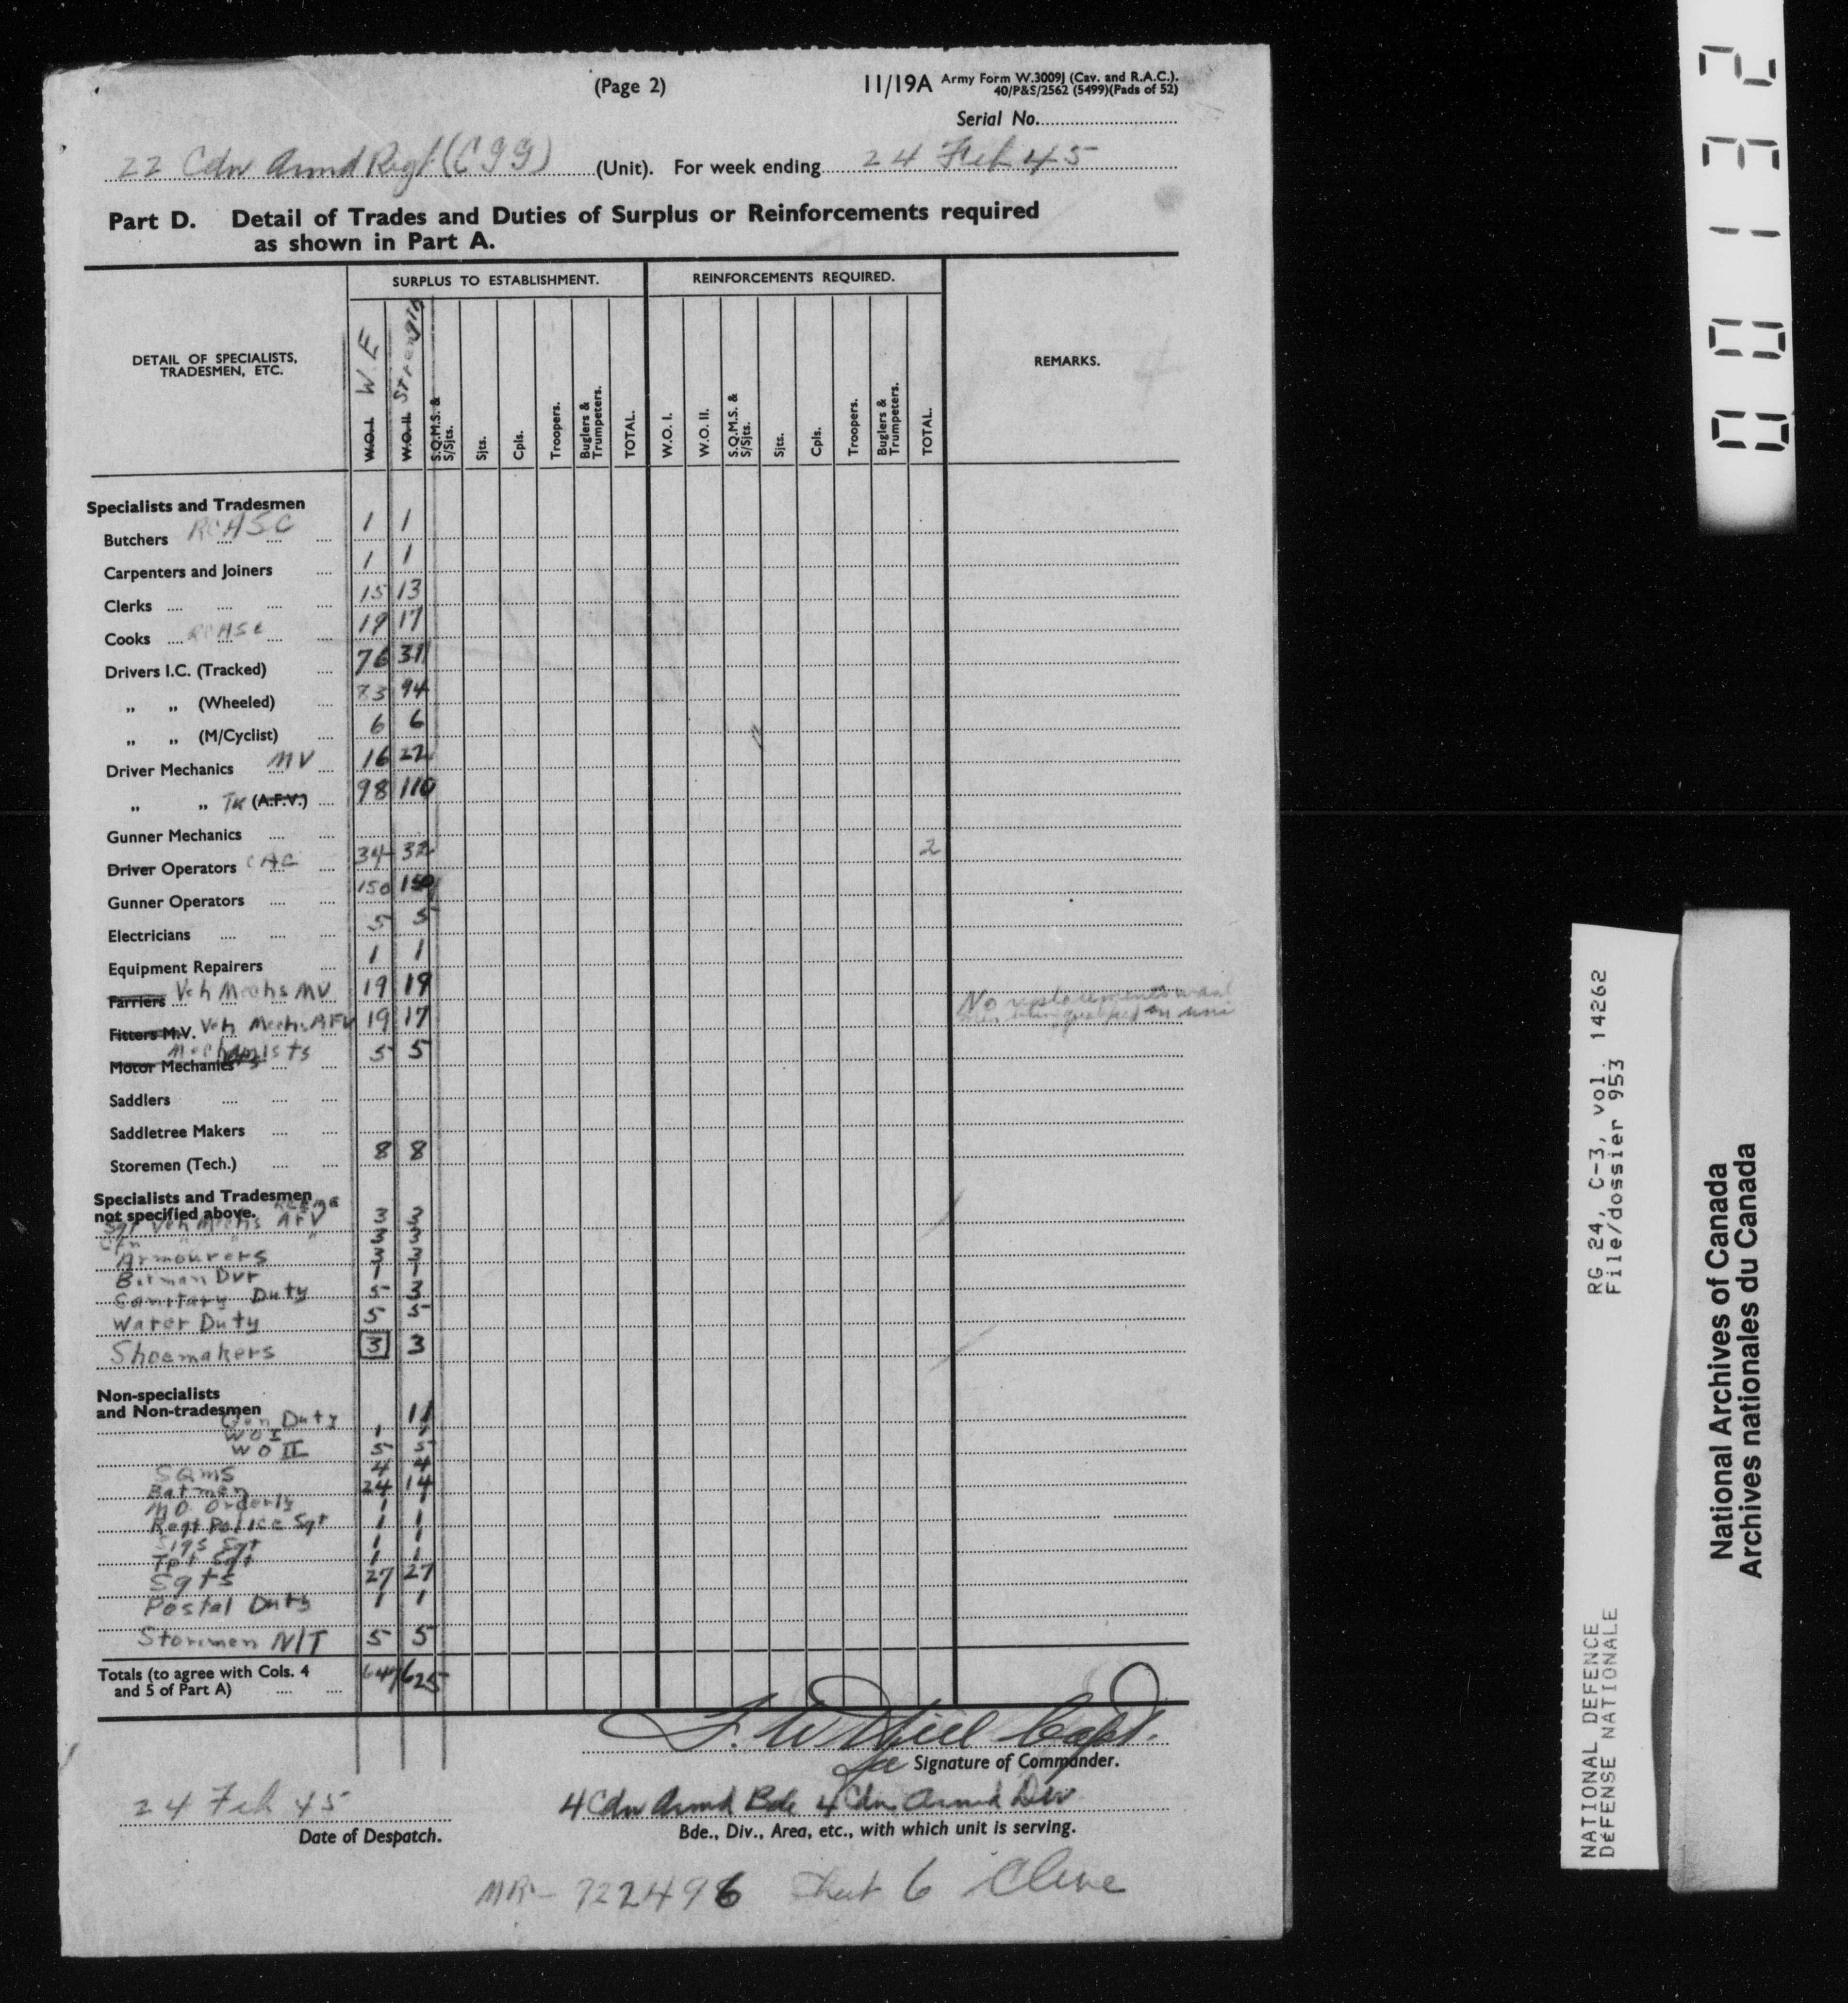 (Page 2)
11/19A Army Form W.3009J (Cav. and R.A.C.).
40/P&S/2562 (5499)(Pads of 52)
Serial No.
22 Cdn Armd Regt (CGG) (Unit). For week ending 24 Feb 45
Part D. Detail of Trades and Duties of Surplus or Reinforcements required
as shown in Part A.
SURPLUS TO ESTABLISHMENT. REINFORCEMENTS REQUIRED.
DETAIL OF SPECIALISTS, TRADESMEN, ETC.
W.E Strength
W.O.I. W.O. II. S.Q.M.S. & S/Sjts. Sjts. Cpls. Troopers. Buglers & Trumpeters. TOTAL. W.O. I. W.O. II. S.Q.M.S. & S/Sjts. Sjts. Cpls. Troopers. Buglers & Trumpeters. TOTAL. REMARKS.
Specialists and Tradesmen
Butchers RCASC 1 1
Carpenters and Joiners 1 1
Clerks 15 13
Cooks RCASC 19 17
Drivers I.C. (Tracked) 76 31
„ „ (Wheeled) 73 94
„ „ (M/Cyclist) 6 6
Driver Mechanics MV 16 22
„ „ Tk (A.F.V.) 98 110
Gunner Mechanics
Driver Operators CAC 34 32 2
Gunner Operators 150 150
Electricians 5 5
Equipment Repairers 1 1
Farriers Veh Mechs MV 19 19
Fitters M.V. Veh Mechs AFV 19 17 No replacements
Motor Mechanics Mechanists 5 5
Saddlers
Saddletree Makers
Storemen (Tech.) 8 8
Specialists and Tradesmen
not specified above. RCEME
Sgt Veh Mechs AFV 3 3
Cfn " " " 3 3
Armourers 3 3
Batman Dvr 1 1
Sanitary Duty 5 3
Water Duty 5 5
Shoemakers 3 3
Non-specialists
and Non-tradesmen
Gen Duty 11
WO I 1 1
WO II 5 5
SQMS 4 4
Batmen 24 14
MO Orderly 1 1
Regt Police Sgt 1 1
Sigs Sgt 1 1
Tpt Sgt 1 1
Sgts 27 27
Postal Duty 1 1
Storemen N/T 5 5
Totals (to agree with Cols. 4
and 5 of Part A) 647 625
Capt.
Signature of Commander.
24 Feb 45
Date of Despatch.
4 Cdn Armd Bde 4 Cdn Armd Div
Bde., Div., Area, etc., with which unit is serving.
MR- 722496 Sheet 6 Cleve
00132
RG 24, C-3, vol. 14262
File/dossier 953
NATIONAL DEFENCE
DÉFENSE NATIONALE
National Archives of Canada
Archives nationales du Canada